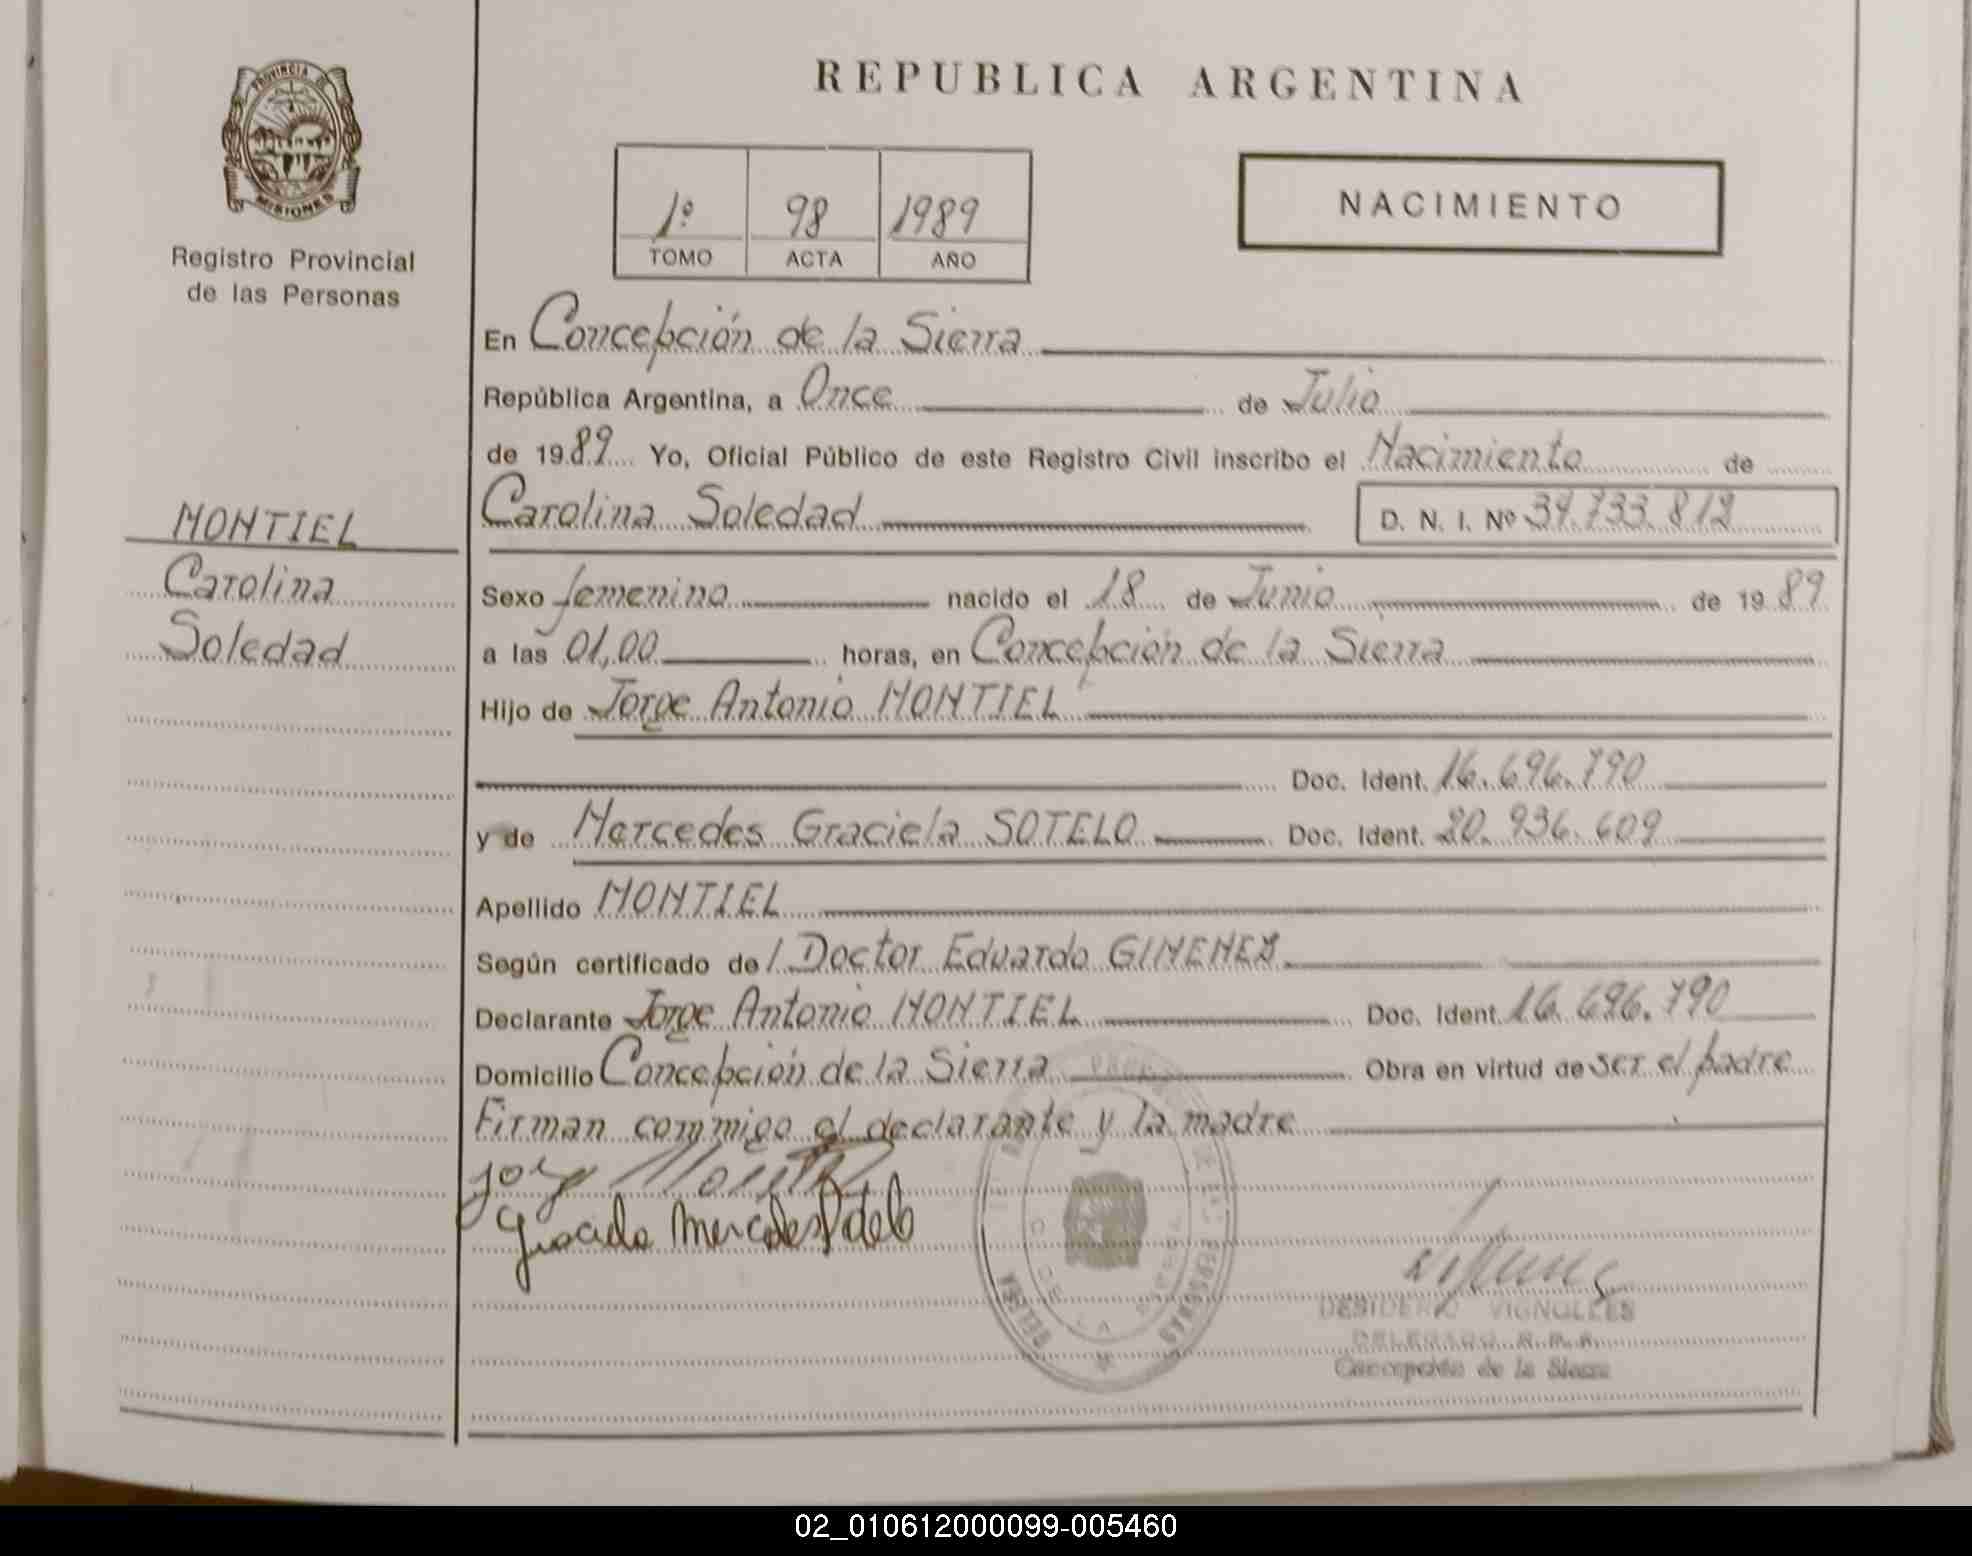 REPUBLICA ARGENTINA
PROVINCIA DE
MISIONES
Registro Provincial
de las Personas
1º 98 1989
TOMO ACTA AÑO
NACIMIENTO
En Concepción de la Sierra
República Argentina, a Once de Julio
de 1989 Yo, Oficial Público de este Registro Civil inscribo el Nacimiento de
Carolina Soledad D. N. I. Nº 34.733.812
MONTIEL
Carolina
Soledad
Sexo femenino nacido el 18 de Junio de 1989
a las 01,00 horas, en Concepción de la Sierra
Hijo de Jorge Antonio MONTIEL
Doc. Ident. 16.696.790
y de Mercedes Graciela SOTELO Doc. Ident. 20.936.609
Apellido MONTIEL
Según certificado de/ Doctor Eduardo GIMENEZ
Declarante Jorge Antonio MONTIEL Doc. Ident. 16.696.790
Domicilio Concepción de la Sierra Obra en virtud de ser el padre
Firman conmigo el declarante y la madre
Graciela Mercedes Sotelo
DESIDERIO VIGNOLLES
DELEGADO R.P.P.
Concepción de la Sierra
02_010612000099-005460